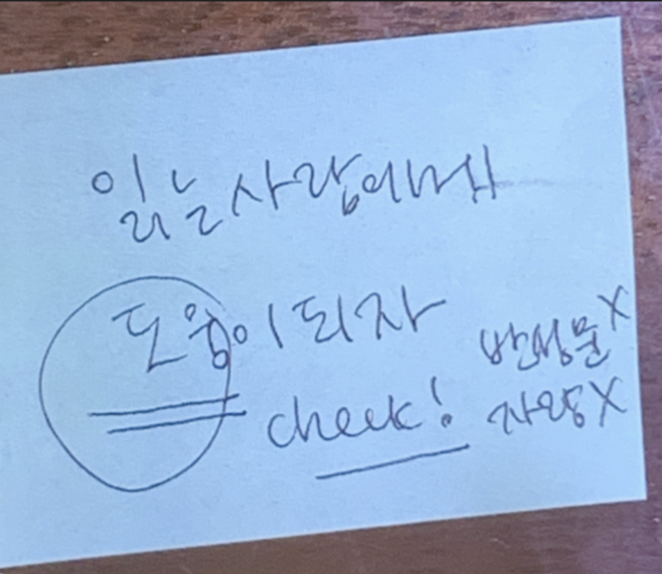 읽는 사람에게
도움이 되자
check!
반성문 X
자랑 X